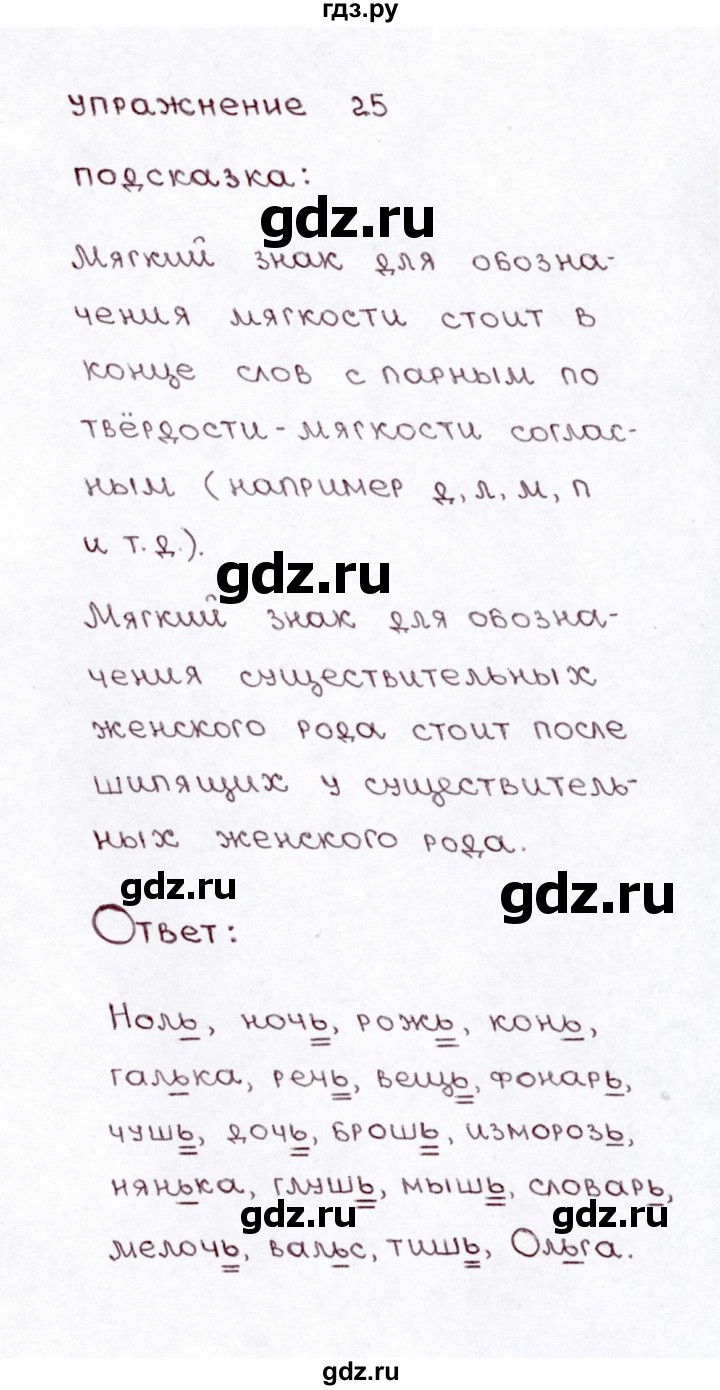 гдз.ру
упражнение 25
подсказка:
gdz.ru
Мягкий знак для обозна-
чения мягкости стоит в
конце слов с парным по
твёрдости-мягкости соглас-
ным (например д, л, м, п
и т.д.).
gdz.ru
Мягкий знак для обозна-
чения существительных
женского рода стоит после
шипящих у существитель-
ных женского рода.
gdz.ru
gdz.ru
Ответ:
Ноль, ночь, рожь, конь,
галька, речь, вещь, фонарь,
чушь, дочь, брошь, изморозь,
нянька, глушь, мышь, словарь,
gdz.ru
gdz.ru
мелочь, вальс, тишь, Ольга.
gdz.ru